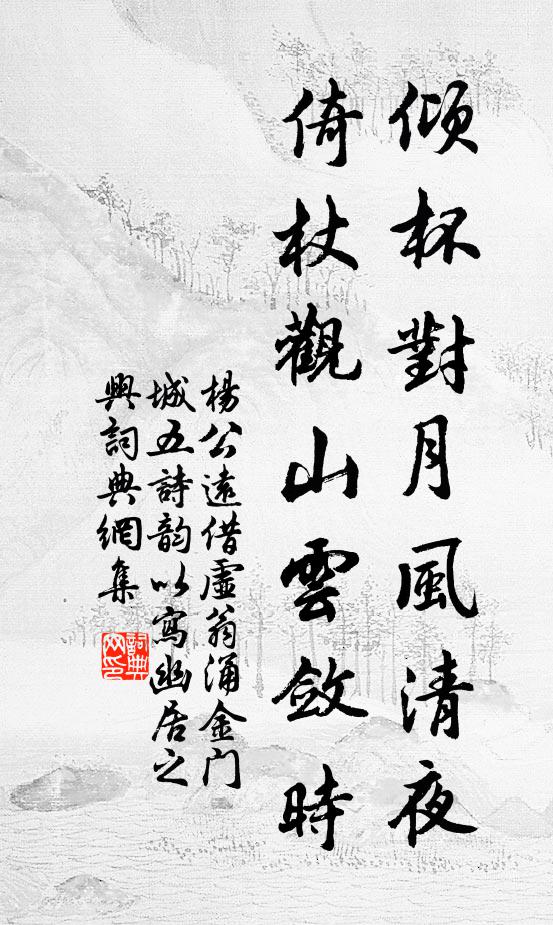 傾杯對月風清夜
倚杖觀山雲斂時
楊公遠借虛翁涌金门
城五詩韵以寫幽居之
興詞典網集
詞典
网印